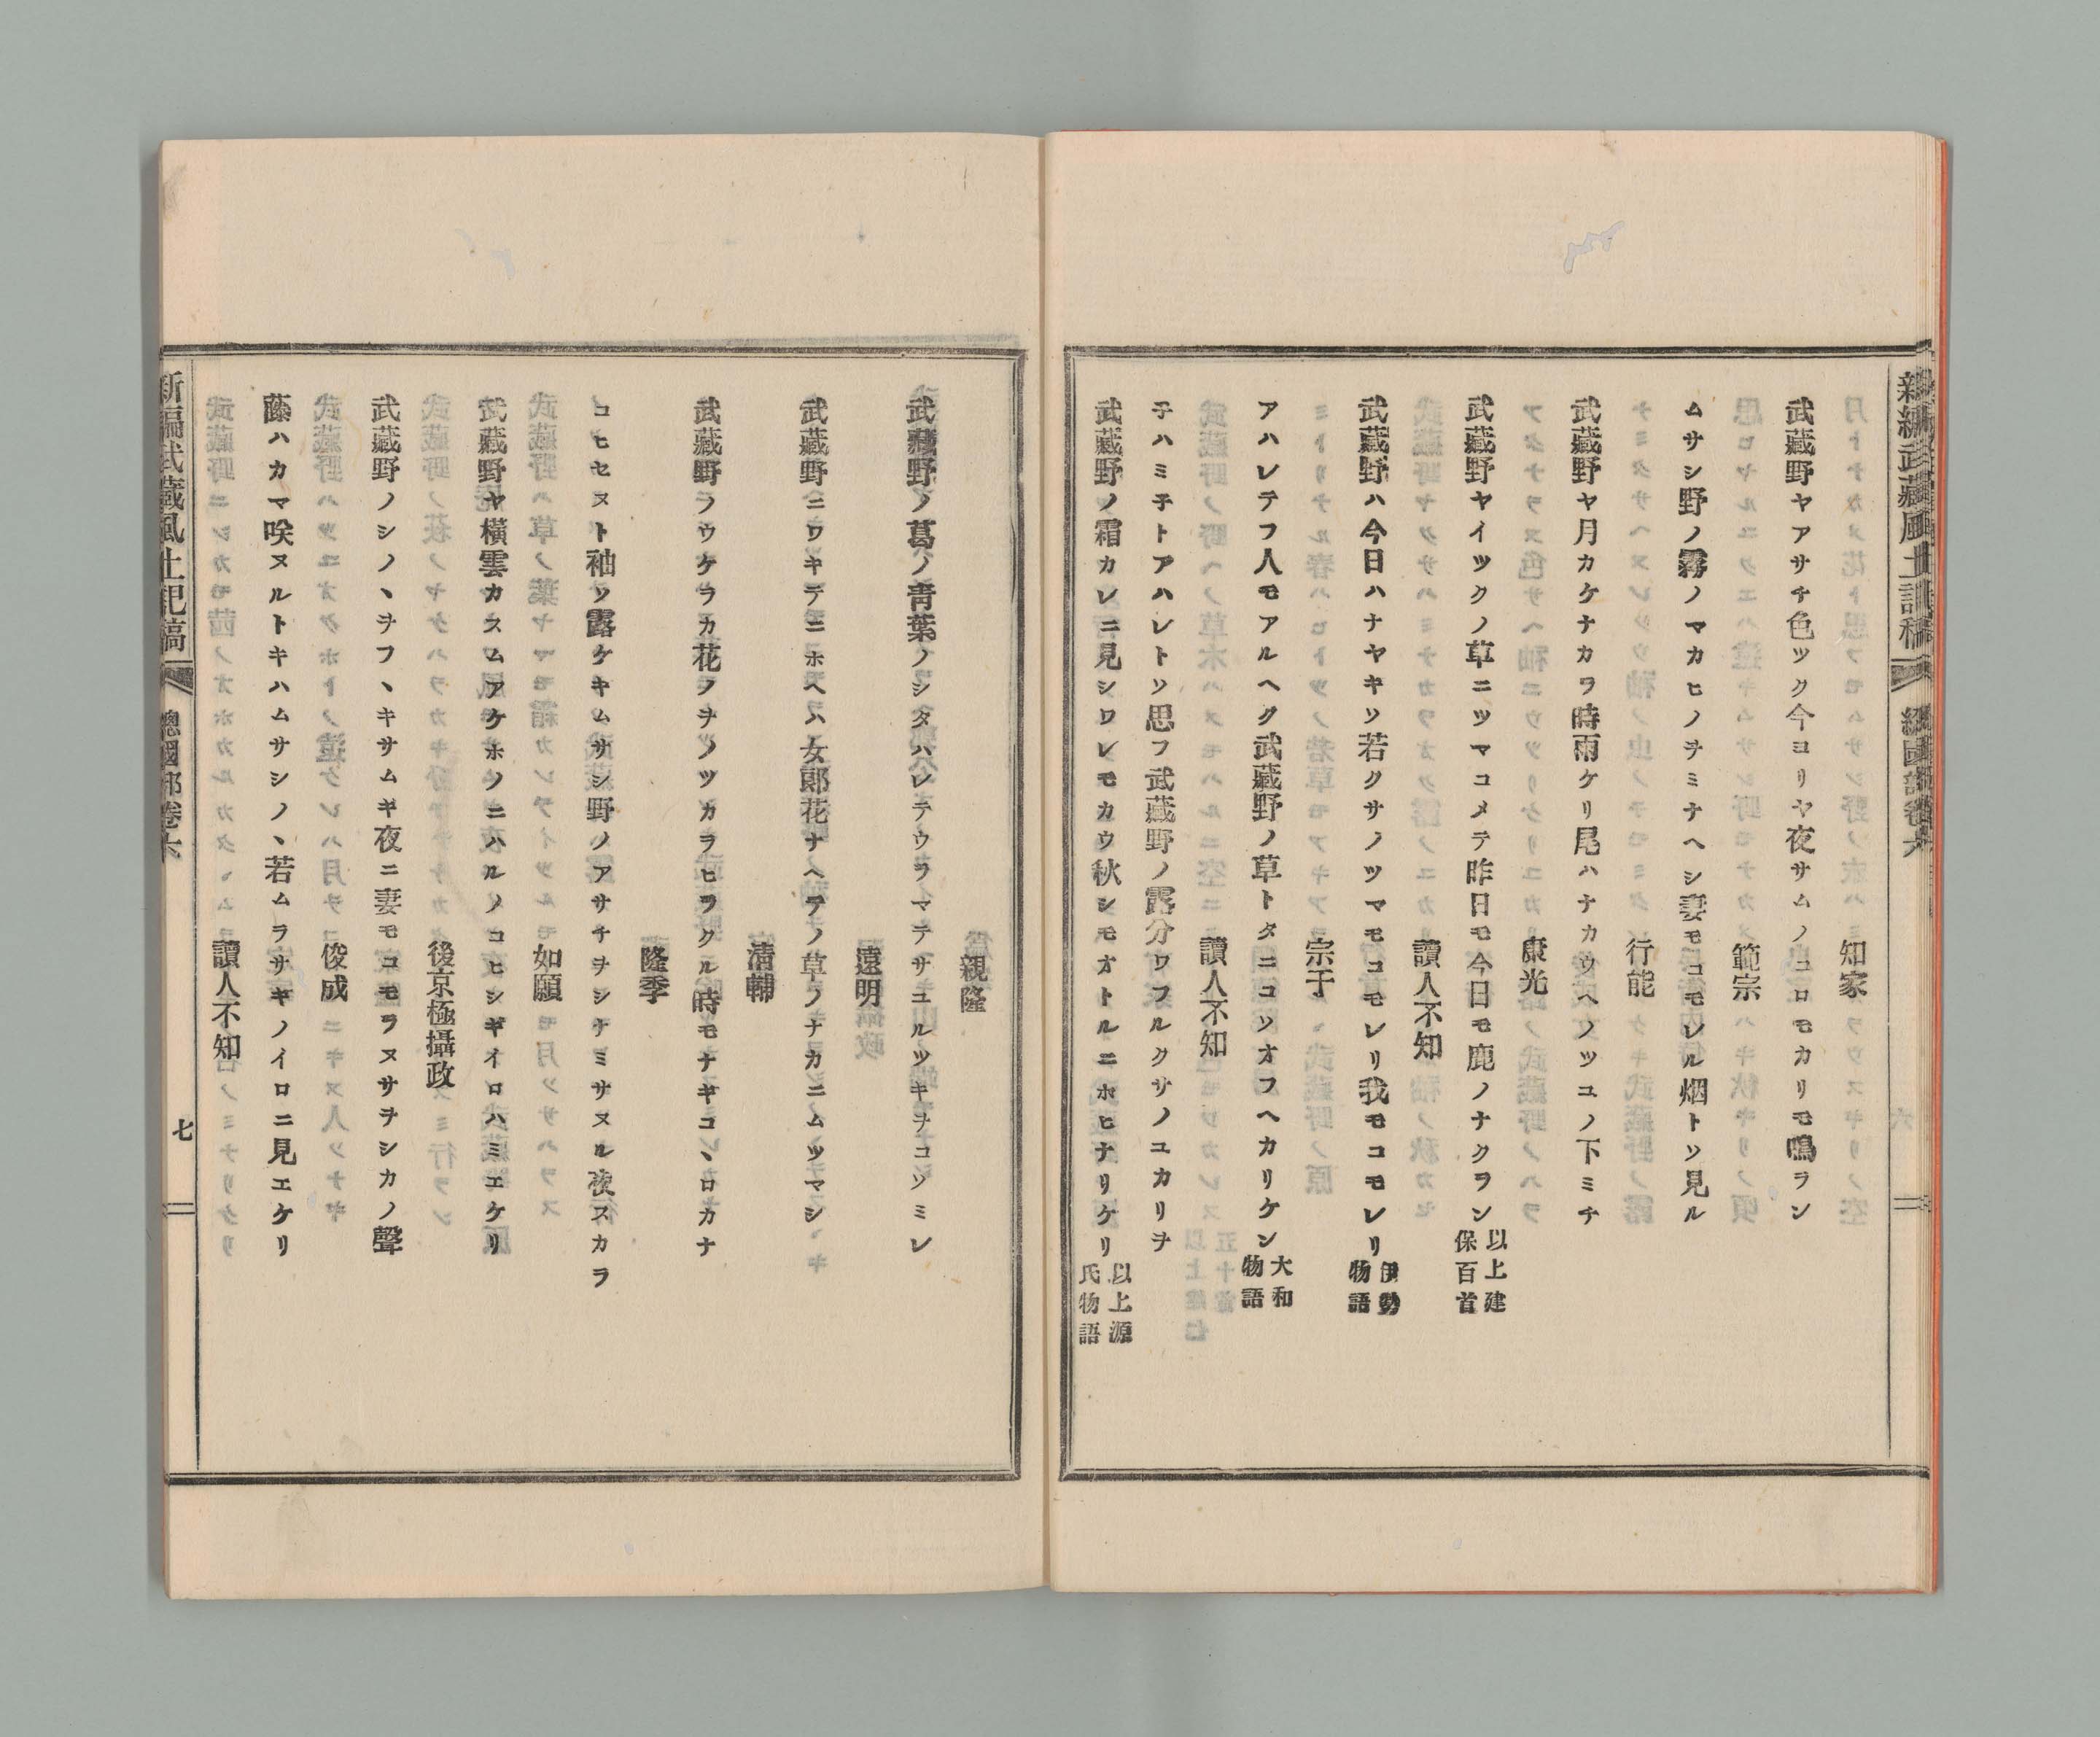 知家
武藏野ヤアサチ色ツク今ヨリヤ夜サムノコロモカリモ鳴ラン
範宗
ムサシ野ノ霧ノマカヒノヲミナヘシ妻モコモレル烟トソ見ル
行能
武藏野ヤ月カケナカラ時雨ケリ尾ハナカウヘノツユノ下ミチ
康光
武藏野ヤイツクノ草ニツマコメテ昨日モ今日モ鹿ノナクラン
以上建
保百首
讀人不知
武藏野ハ今日ハナヤキソ若クサノツマモコモレリ我モコモレリ
伊勢
物語
宗于
アハレテフ人モアルヘク武藏野ノ草トタニコソオフヘカリケン
大和
物語
讀人不知
チハミチトアハレトソ思フ武藏野ノ露分ワフルクサノユカリヲ
武藏野ノ霜カレニ見シワレモカウ秋シモオトルニホヒナリケリ
以上源
氏物語
親隆
武藏野ノ葛ノ靑葉ノシタハレテウラマテサユルツキヲコソミレ
遠明
武藏野ニワキテニホヘハ女郞花ナヘテノ草ノナカニムツマシ
淸輔
武藏野ノウケラカ花ノヲノツカラヒラクル時モナキコヽロカナ
隆季
コヒセヌト袖ソ露ケキムサシ野ノアサチヲシナミサヌル夜スカラ
如願
武藏野ヤ橫雲カスムアケホノニハルノコヒシキイロハミエケリ
後京極攝政
武藏野ノシノヽヲフヽキサムキ夜ニ妻モコモラヌサヲシカノ聲
俊成
藤ハカマ咲ヌルトキハムサシノヽ若ムラサキノイロニ見エケリ
讀人不知
新編武藏風土記稿
總國部卷六
七